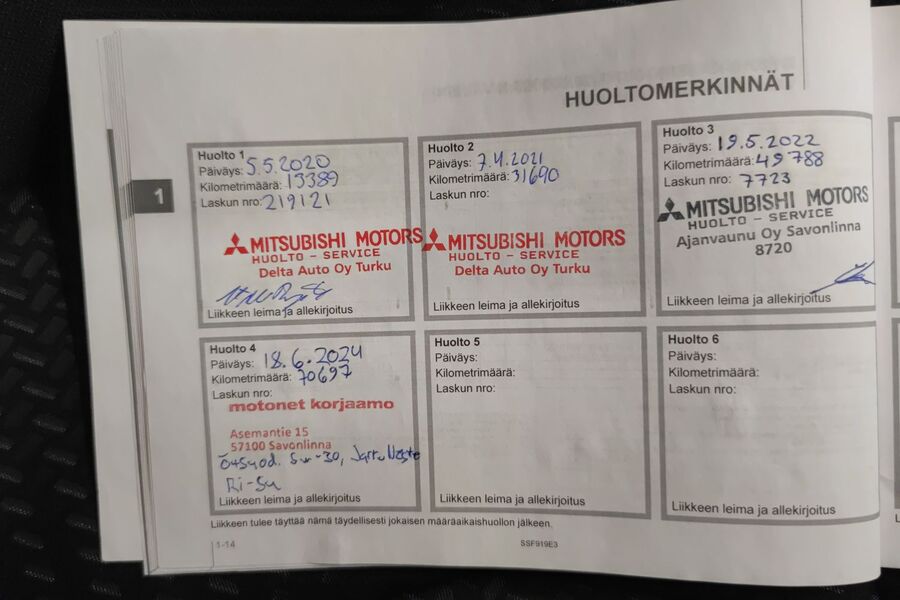 HUOLTOMERKINNÄT
1
Huolto 1
Päiväys: 5.5.2020
Kilometrimäärä: 13389
Laskun nro: 219121
MITSUBISHI MOTORS
HUOLTO - SERVICE
Delta Auto Oy Turku
Liikkeen leima ja allekirjoitus
Huolto 2
Päiväys: 7.4.2021
Kilometrimäärä: 31690
Laskun nro:
MITSUBISHI MOTORS
HUOLTO - SERVICE
Delta Auto Oy Turku
Liikkeen leima ja allekirjoitus
Huolto 3
Päiväys: 19.5.2022
Kilometrimäärä: 49788
Laskun nro: 7723
MITSUBISHI MOTORS
HUOLTO - SERVICE
Ajanvaunu Oy Savonlinna
8720
Liikkeen leima ja allekirjoitus
Huolto 4
Päiväys: 18.6.2024
Kilometrimäärä: 70697
Laskun nro:
motonet korjaamo
Asemantie 15
57100 Savonlinna
Ö+Suod. 5w-30, Jarruneste
Ri-Su
Liikkeen leima ja allekirjoitus
Huolto 5
Päiväys:
Kilometrimäärä:
Laskun nro:
Liikkeen leima ja allekirjoitus
Huolto 6
Päiväys:
Kilometrimäärä:
Laskun nro:
Liikkeen leima ja allekirjoitus
Liikkeen tulee täyttää nämä täydellisesti jokaisen määräaikaishuollon jälkeen.
1-14
SSF919E3